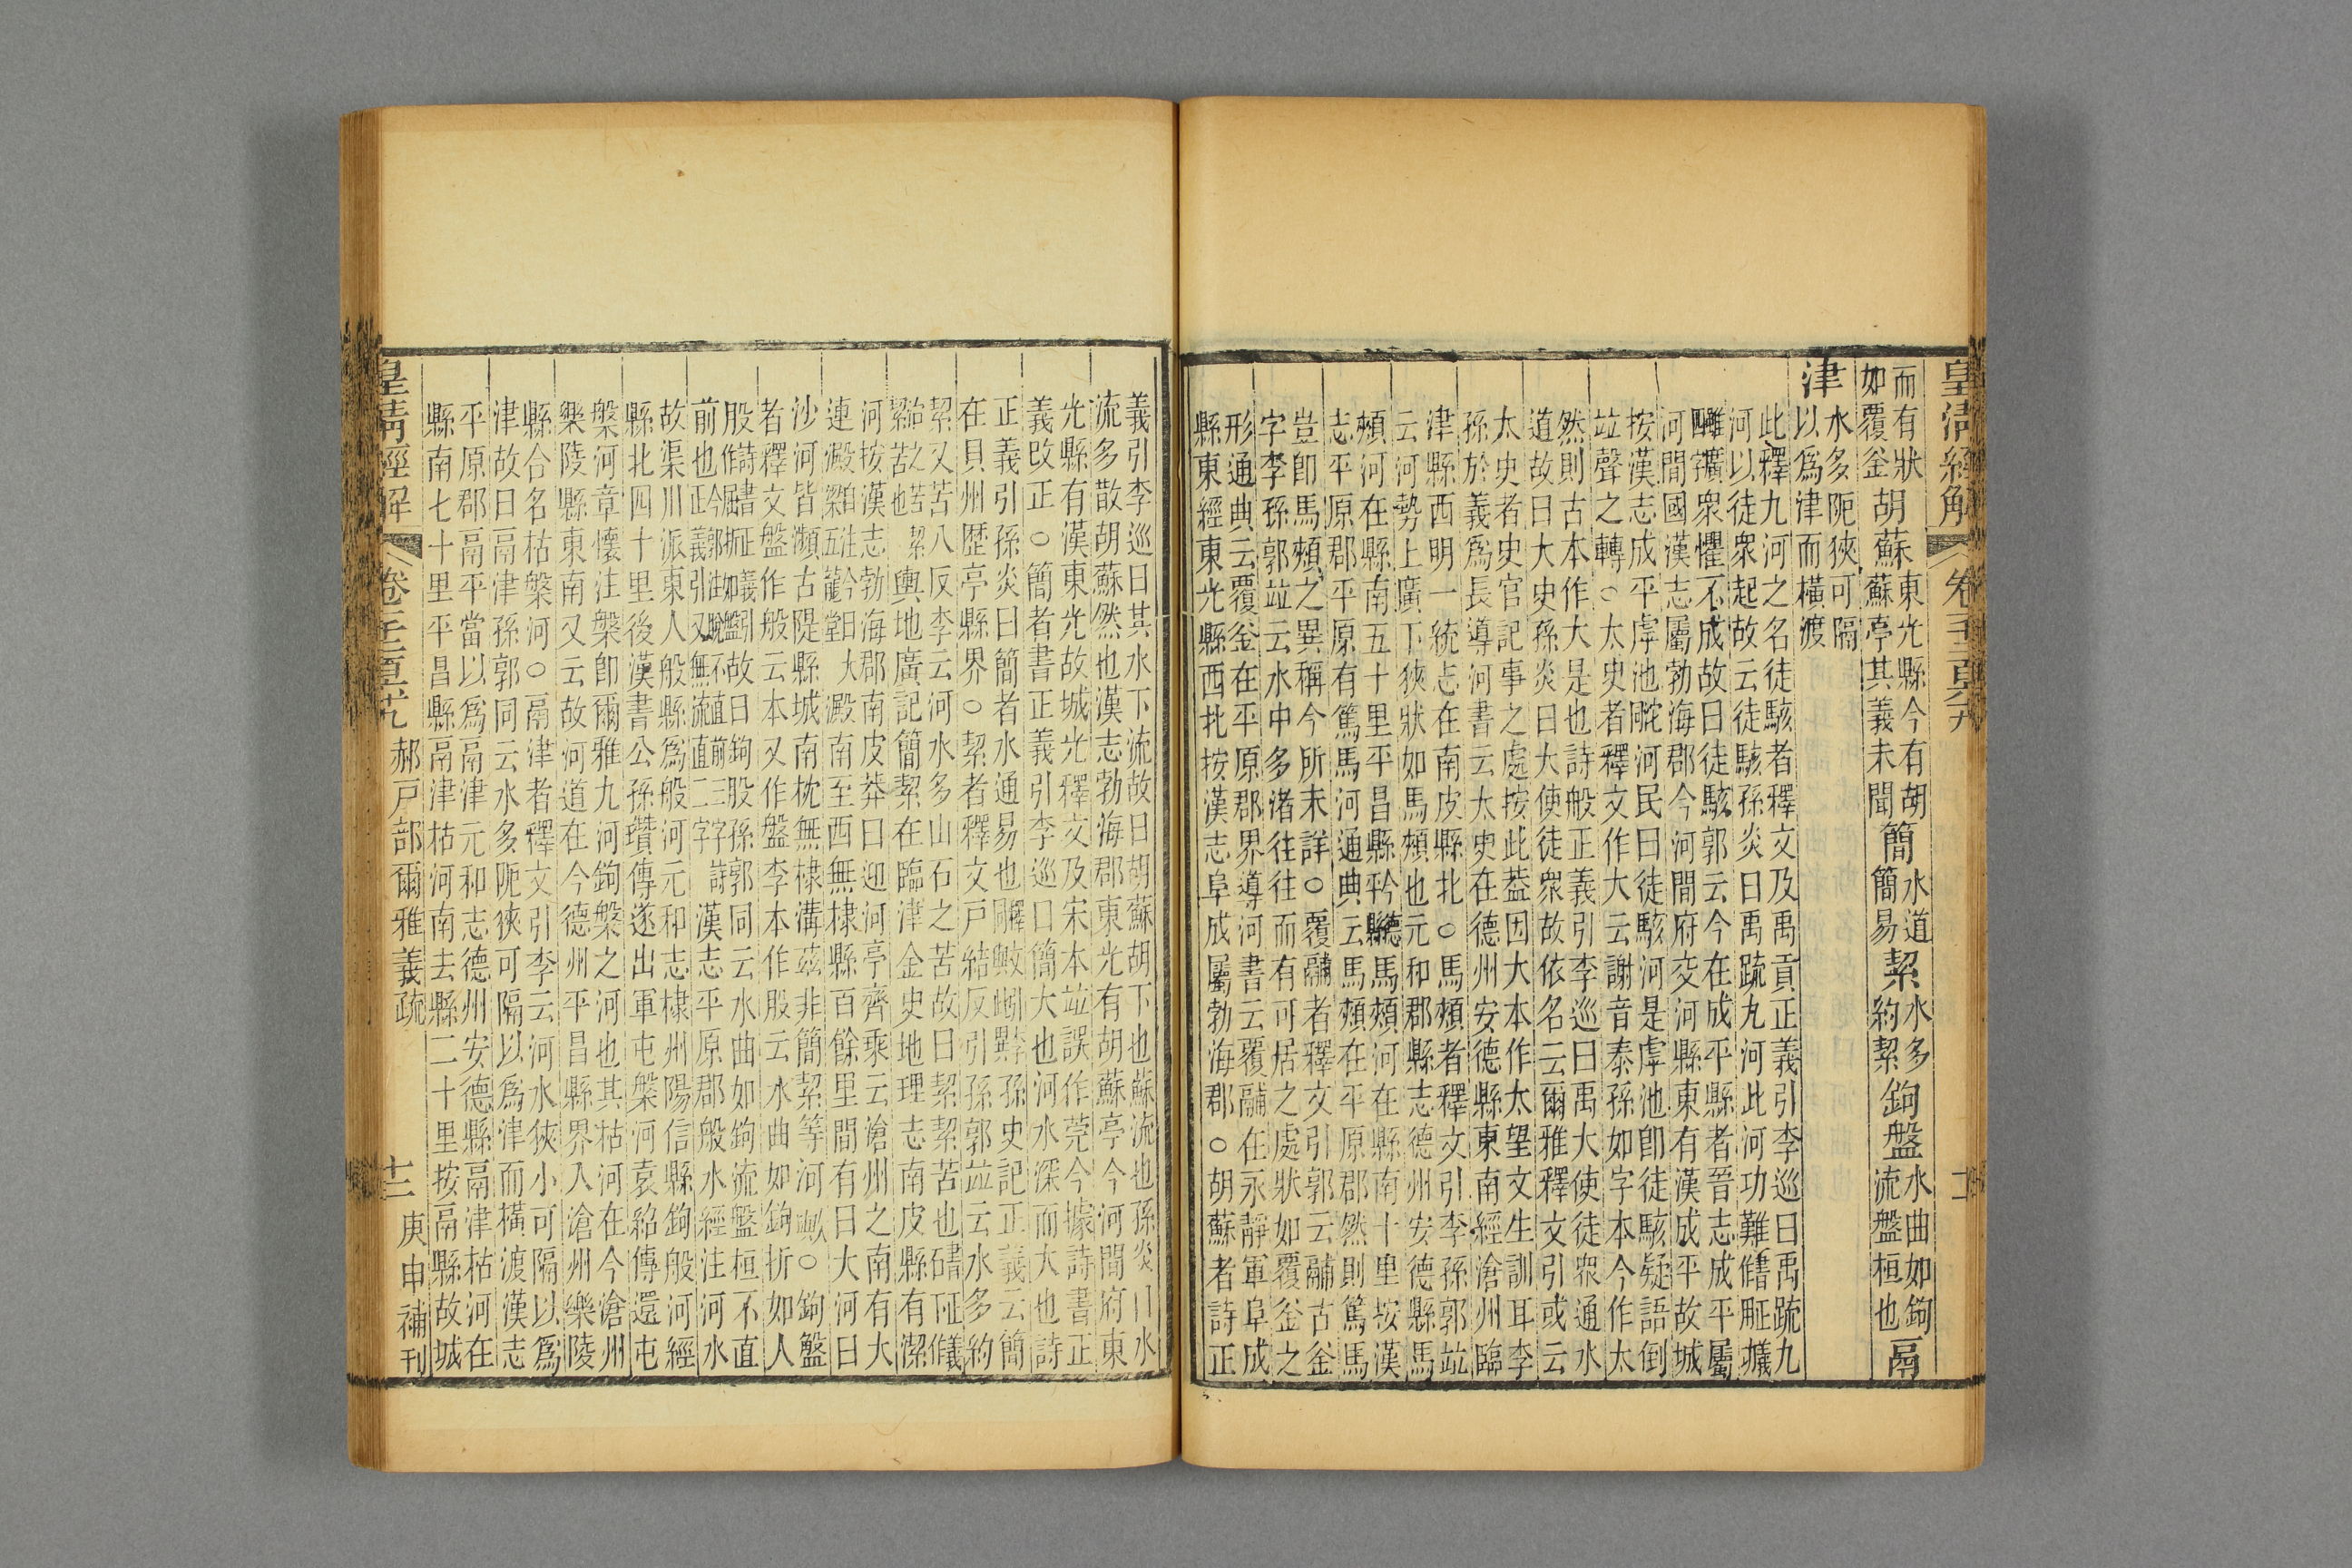 皇清經解
卷千二百六十九
十二
而有狀
如覆釡
胡蘇
東光縣今有胡
蘇亭其義未聞
簡
水道
簡易
絜
水多
約絜
鉤盤
水曲如鉤
流盤桓也
鬲
津
水多阨狹可隔
以爲津而橫渡
此釋九河之名徒駭者釋文及禹貢正義引李巡曰禹疏九
河以徒衆起故云徒駭孫炎曰禹疏九河此河功難
衆懼不成故曰徒駭郭云今在成平縣者晉志成平屬
河間國漢志屬勃海郡今河間府交河縣東有漢成平故城
按漢志成平虖池河民曰徒駭河是虖池卽徒駭疑語倒
竝聲之轉○太史者釋文作大云謝音泰孫如字本今作太
然則古本作大是也詩般正義引李巡曰禹大使徒衆通水
道故曰大史孫炎曰大使徒衆故依名云爾雅釋文引或云
太史者史官記事之處按此葢因大本作太望文生訓耳李
孫於義爲長導河書云太史在德州安德縣東南經滄州臨
津縣西明一統志在南皮縣北○馬頰者釋文引李孫郭竝
云河勢上廣下狹狀如馬頰也元和郡縣志德州安德縣馬
頰河在縣南五十里平昌縣馬頰河在縣南十里按漢
志平原郡平原有篤馬河通典云馬頰在平原郡然則篤馬
豈卽馬頰之異稱今所未詳○覆鬴者釋文引郭云鬴古釡
字李孫郭竝云水中多渚往往而有可居之處狀如覆釡之
形通典云覆釡在平原郡界導河書云覆鬴在永靜軍阜成
縣東經東光縣西北按漢志阜成屬勃海郡○胡蘇者詩正
義引李巡曰其水下流故曰胡蘇胡下也蘇流也孫炎曰水
流多散胡蘇然也漢志勃海郡東光有胡蘇亭今河間府東
光縣有漢東光故城光釋文及宋本竝誤作莞今據詩書正
義改正○簡者書正義引李巡曰簡大也河水深而大也詩
正義引孫炎曰簡者水通易也孫史記正義云簡
在貝州歷亭縣界○絜者釋文戶結反引孫郭竝云水多約
絜又苦八反李云河水多山石之苦故曰絜絜苦也
輿地廣記簡絜在臨津金史地理志南皮縣有潔
河按漢志勃海郡南皮莽曰迎河亭齊乘云滄州之南有大
連澱南至西無棣縣百餘里間有曰大河曰
沙河皆瀕古隄縣城南枕無棣溝茲非簡絜等河歟○鉤盤
者釋文盤作般云本又作盤李本作股云水曲如鉤折如人
股故曰鉤股孫郭同云水曲如鉤流盤桓不直
前也漢志平原郡般水經注河水
故渠川派東入般縣爲般河元和志棣州陽信縣鉤般河經
縣北四十里後漢書公孫瓚傳遂出軍屯槃河袁紹傳還屯
槃河章懷注槃卽爾雅九河鉤槃之河也其枯河在今滄州
樂陵縣東南又云故河道在今德州平昌縣界入滄州樂陵
縣合名枯槃河○鬲津者釋文引李云河水狹小可隔以爲
津故曰鬲津孫郭同云水多阨狹可隔以爲津而橫渡漢志
平原郡鬲平當以爲鬲津元和志德州安德縣鬲津枯河在
縣南七十里平昌縣鬲津枯河南去縣二十里按鬲縣故城
皇清經解
卷千二百六十九
郝戶部爾雅義疏
十二
庚申補刊